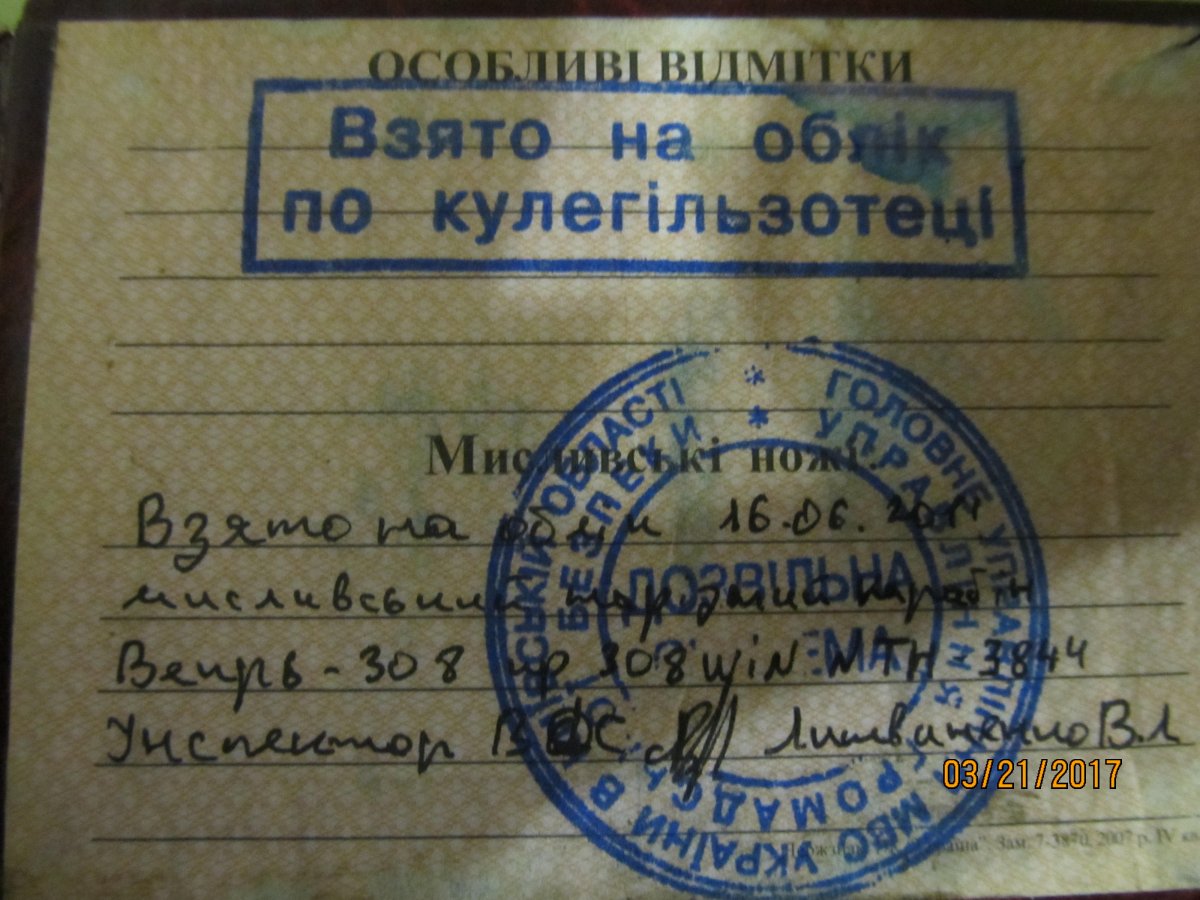 ОСОБЛИВІ ВІДМІТКИ
Взято на облік
по кулегільзотеці
Мисливські ножі:
Взято на облік 16.06.
мисливський нарізний карабін
Вепрь-308 кр 308 WiN N ТН 3844
Інспектор ВДС Литвиненко В.Л
ГОЛОВНЕ УПРАВЛІННЯ МВС УКРАЇНИ В ОБЛАСТІ
УПРАВЛІННЯ ГРОМАДСЬКОЇ БЕЗПЕКИ
ДОЗВІЛЬНА
СИСТЕМА
Зам. 7-3870, 2007 р. IV кв
03/21/2017